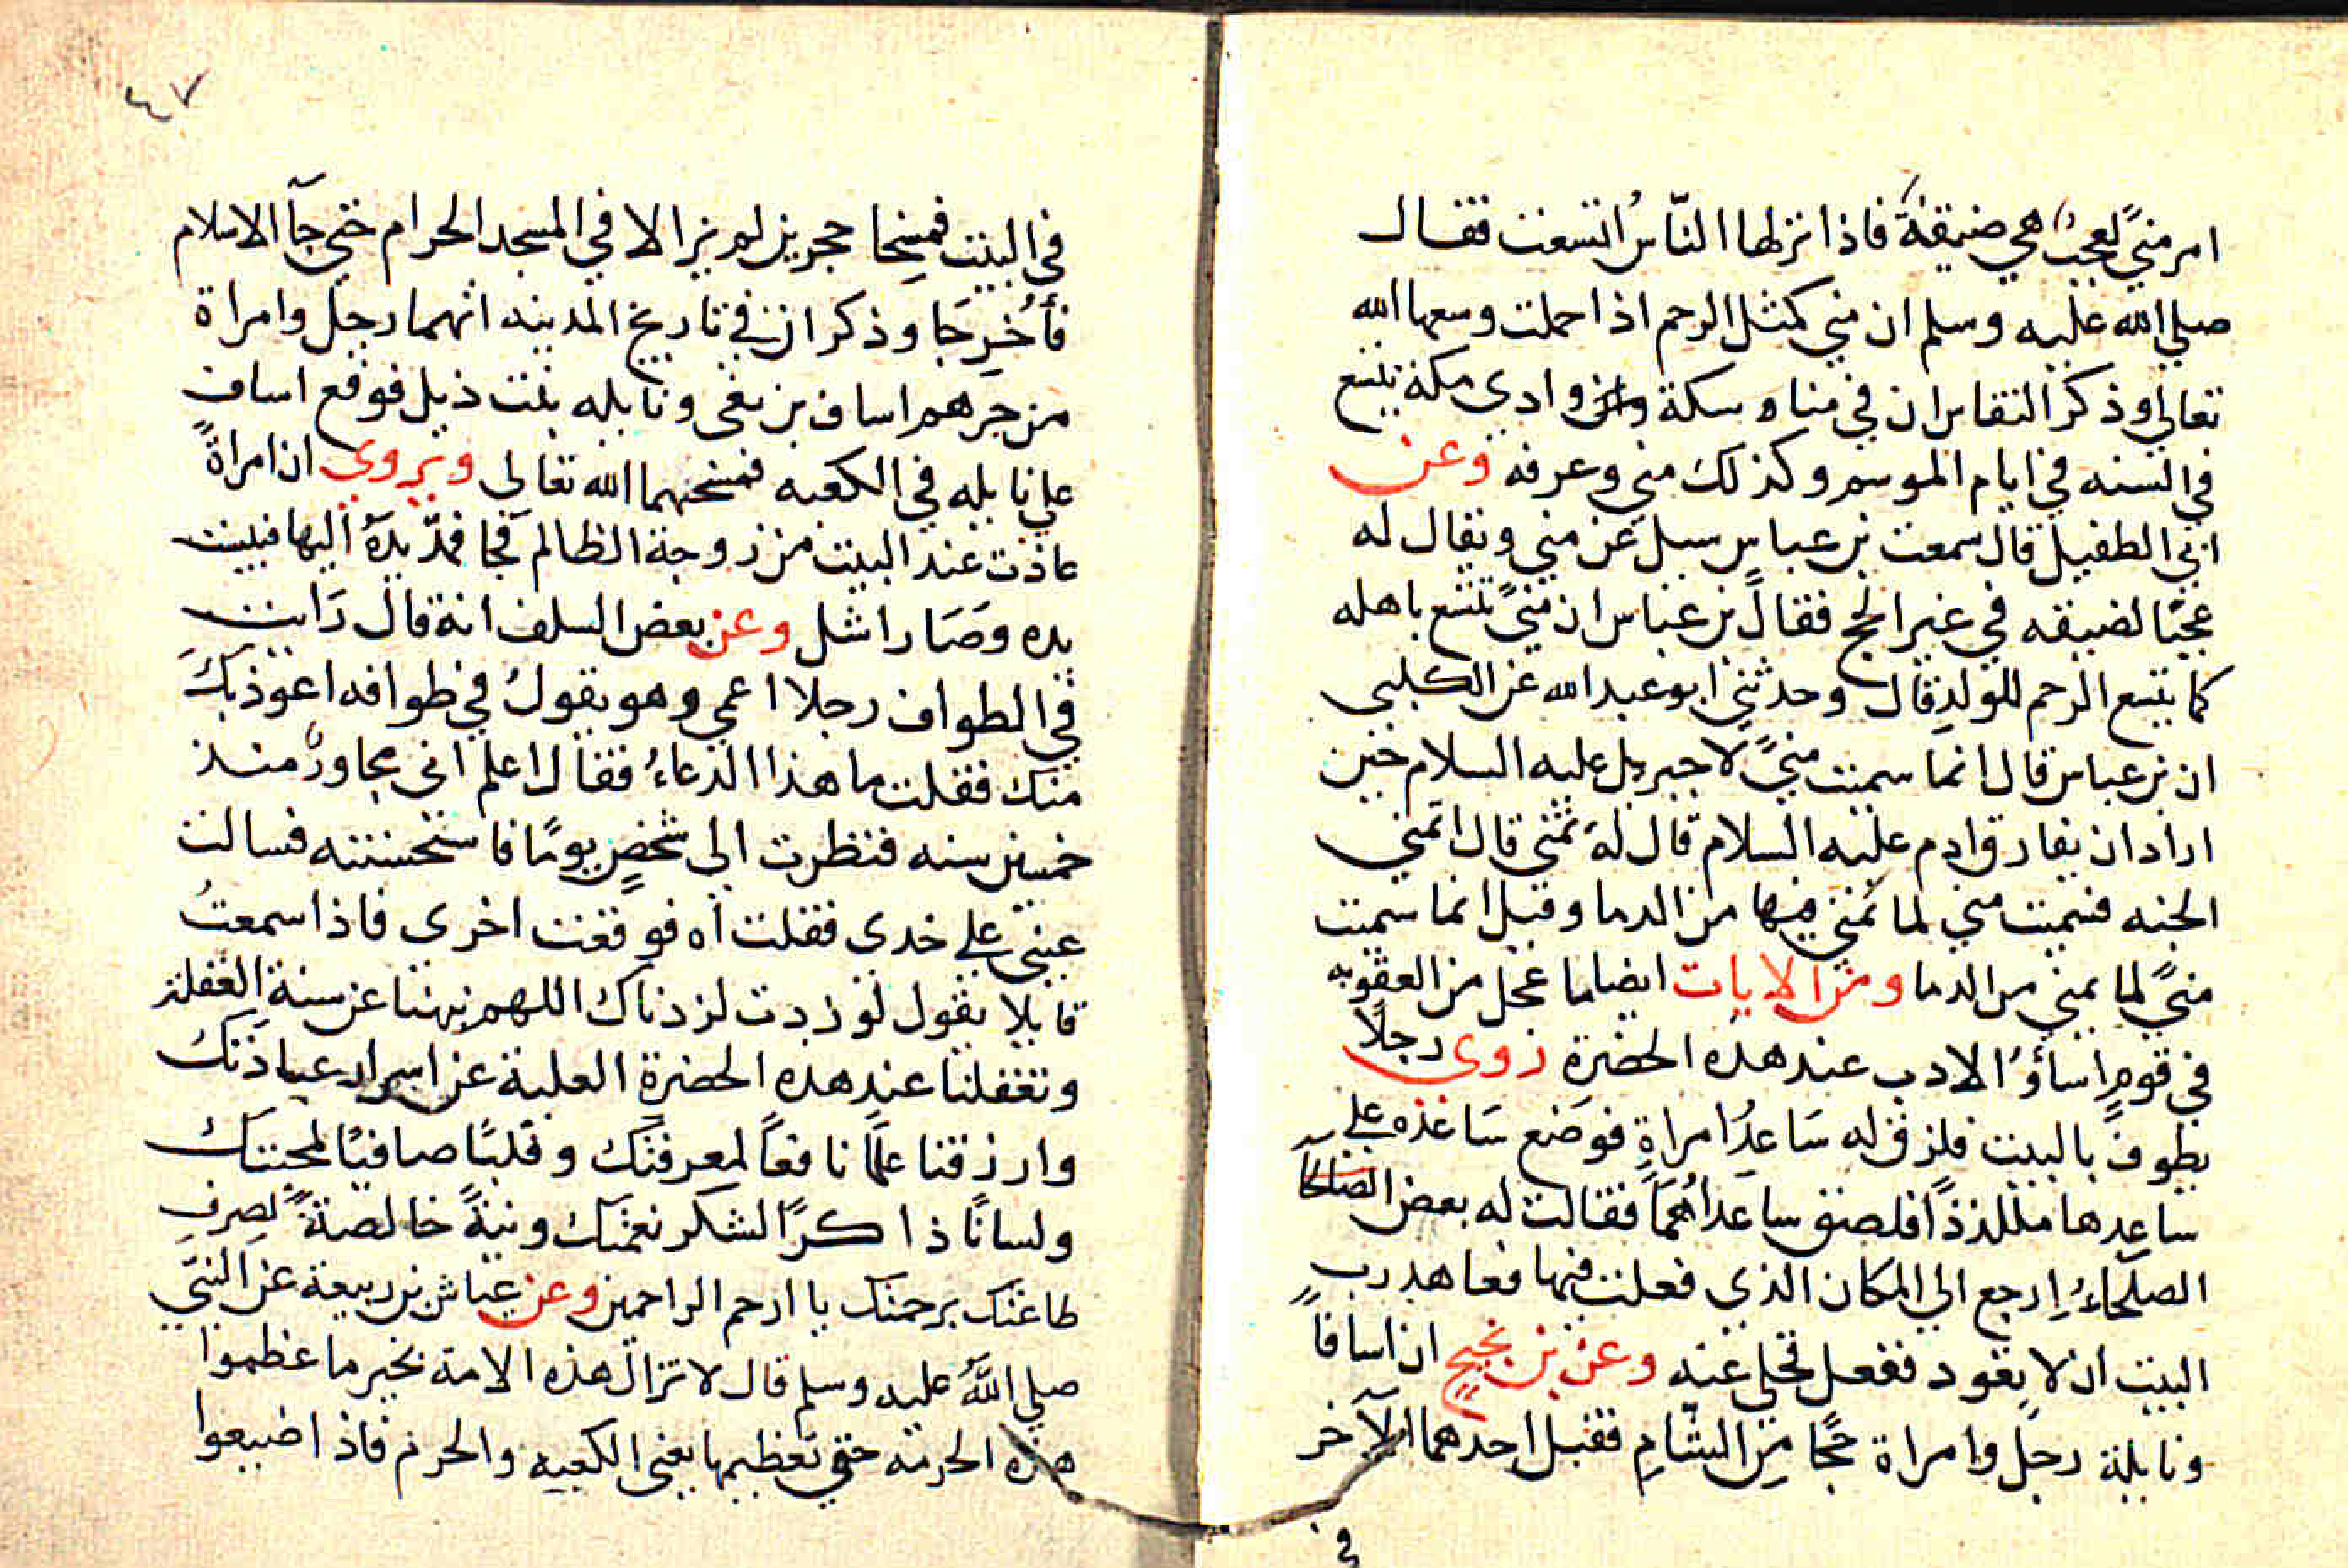 امر منيً لعجبٌ هي ضيقةٌ فاذا نزلها الناسُ اتسعت فقال
صلي الله عليه وسلم ان مني كمثل الرحم اذا حملت وسعها الله
تعالي وذكر النقاس ان في مناه وادى مكة تتسع
في السنه في ايام الموسم وكذلك مني وعرفه وعن
ابي الطفيل قال سمعت بن عباس سيل عن مني ويقال له
عجبًا لضيقه في غير الحج فقال بن عباس ان منيً تتسع باهله
كما يتسع الرحم للولد قال وحدثني ابو عبد الله عن الكلبي
ان بن عباس قال انما سميت منيً لان جبريل عليه السلام حين
اراد ان يفارق ادم عليه السلام قال له تمني قال اتمني
الجنه فسميت مني لما تمني فيها من الدما وقيل انما سميت
منيً لما يمني من الدما ومن الايات ايضا ما عجل من العقوبه
في قومٍ اساؤُ الادب عند هذه الحضرة روي رجلاً
يطوف بالبيت فلزق له ساعدُ امراةٍ فوضع ساعده علي
ساعدها متلذذاً فلصق ساعداهما فقالت له بعض الصلحآ
الصلحاءُ ارجع الي المكان الذي فعلت فيها فعاهد رب
البيت ان لا يعود ففعل فخلي عنه وعن بن نجيحٍ ان اسافاً
ونايلة رجل وامراة حجًا من الشام فقبل احدهما الآخر
في
٤٧
في البيت فمسخا حجرين لم يزالا في المسجد الحرام حتي جآ الاسلام
فأُخرِجَا وذكر ان في تاريخ المدينه انهما رجل وامراة
من جرهم اساف بن بغي ونايله بنت ذيل فوقع اساف
علي نايله في الكعبه فمسخهما الله تعالي ويروي ان امراةً
عاذت عند البيت من زوجة الظالم فجا فمدّ يدهُ اليها فيبست
يده وصَار اشل وعن بعض السلف انه قال رَايت
في الطواف رجلا اعمي وهو يقولُ في طوافه اعوذ بكَ
منك فقلت ما هذا الدعاءُ فقال اعلم اني مجاورٌ منذ
خمسين سنه فنظرت الى شخصٍ يومًا فاستحسنته فسالت
عيني علي خدى فقلت آه فوقعت اخري فاذا سمعتُ
قايلا يقول لو زدت لزدناك اللهم نبهنا عن سنة الغفلة
وتغفلنا عند هذه الحضرة العلية عن اسرار عبادتك
وارزقنا علمًا نافعاً لمعرفتك وقلبًا صافيًا لمحبتك
ولسانًا ذاكرًا لشكر نعمتك ونيةً خالصةً لصرفِ
طاعتك برحمتك يا ارحم الراحمين وعن عياش بن ربيعة عن النبي
صلي اللهُ عليه وسلم قال لا تزال هذه الامة بخير ما عظموا
هذه الحرمه حتي تعظيمها يعني الكعبه والحرم فاذا اضيعوا